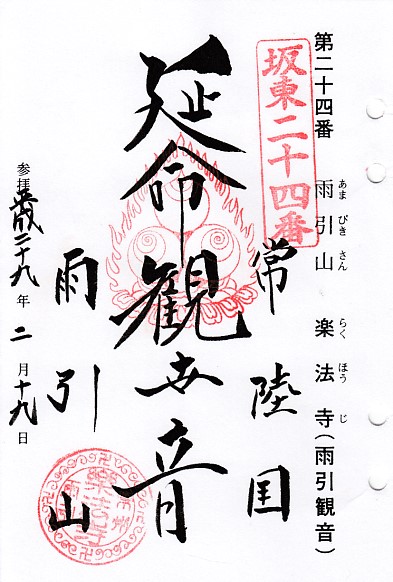 第二十四番 雨引山 楽法寺(雨引観音)
あまびきさん らくほうじ
坂東二十四番
常陸国
延命観世音
雨引山
参拝 平成二十九年 二月十九日